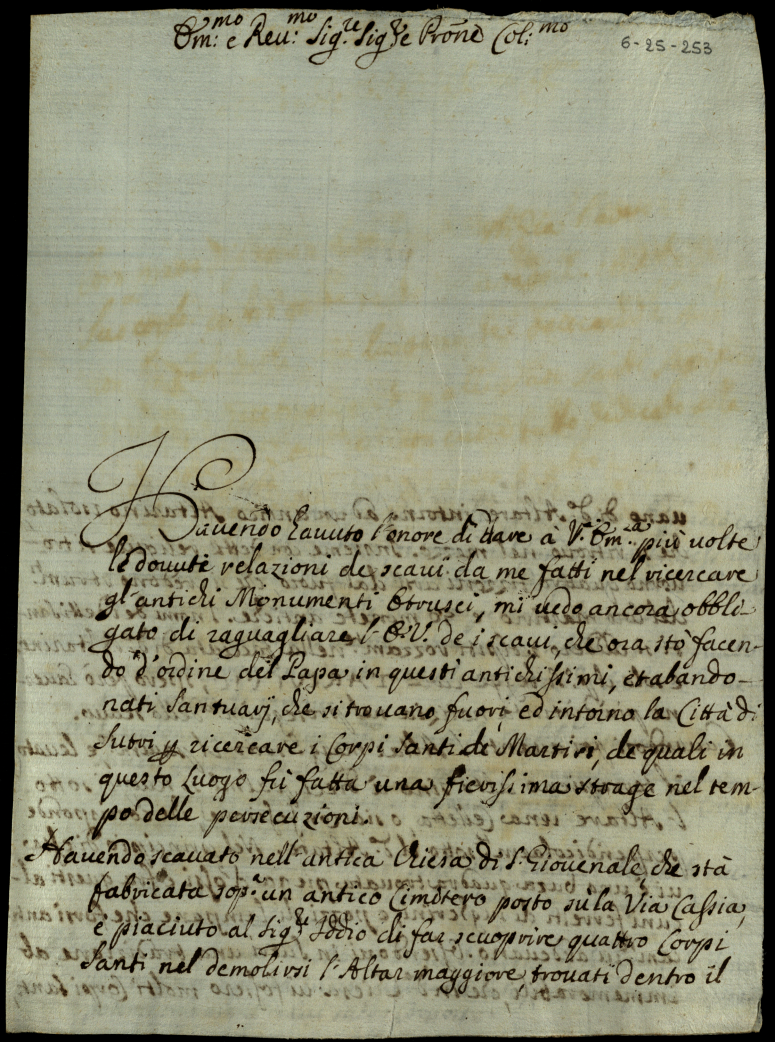 Em:mo e Rev:mo Sig.re Sig.re e Pro͞ne Col:mo
6-25-253
Havendo havuto l'onore di dare à V. Em.a più volte
le dovute relazioni de scavi da me fatti nel ricercare
gl'antichi Monumenti Etrusci, mi vedo ancora obbli-
gato di raguagliare l'E.V. de i scavi, che ora stò facen-
do d'ordine del Papa in questi antichissimi, et abando-
nati Santuarij, che si trovano fuori, ed intorno la Città di
Sutri p ricercare i Corpi Santi de Martiri, de quali in
questo Luogo fù fatta una fierissima strage nel tem-
po delle persecuzioni.
Havendo scavato nell'antica Chiesa di S. Giovenale che stà
fabricata sop.a un antico Cimitero posto su la Via Cassia,
è piaciuto al Sig.re Iddio di far scuoprire quattro Corpi
Santi nel demolirsi l'Altar maggiore, trovati dentro il